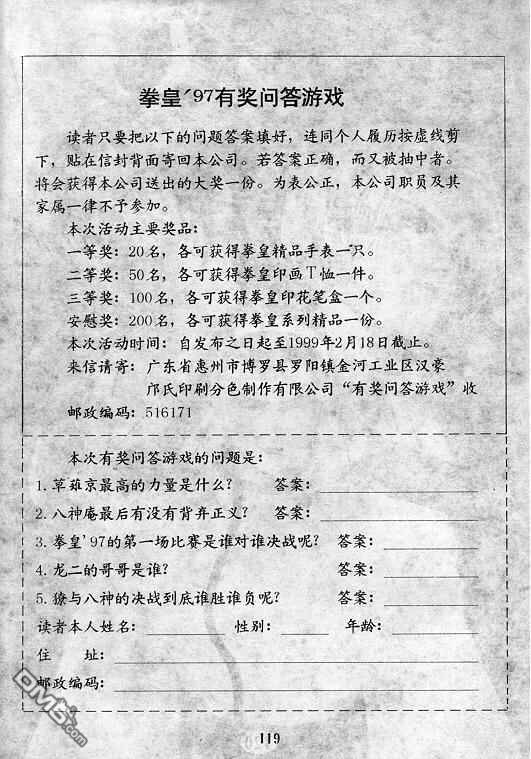 拳皇'97有奖问答游戏
读者只要把以下的问题答案填好，连同个人履历按虚线剪
下，贴在信封背面寄回本公司。若答案正确，而又被抽中者。
将会获得本公司送出的大奖一份。为表公正，本公司职员及其
家属一律不予参加。
本次活动主要奖品：
一等奖：20名，各可获得拳皇精品手表一只。
二等奖：50名，各可获得拳皇印画T恤一件。
三等奖：100名，各可获得拳皇印花笔盒一个。
安慰奖：200名，各可获得拳皇系列精品一份。
本次活动时间：自发布之日起至1999年2月18日截止。
来信请寄：广东省惠州市博罗县罗阳镇金河工业区汉豪
邝氏印刷分色制作有限公司“有奖问答游戏”收
邮政编码：516171
本次有奖问答游戏的问题是：
1. 草薙京最高的力量是什么？ 答案：
2. 八神庵最后有没有背弃正义？ 答案：
3. 拳皇'97的第一场比赛是谁对谁决战呢？ 答案：
4. 龙二的哥哥是谁？ 答案：
5. 獠与八神的决战到底谁胜谁负呢？ 答案：
读者本人姓名： 性别： 年龄：
住 址：
邮政编码：
119